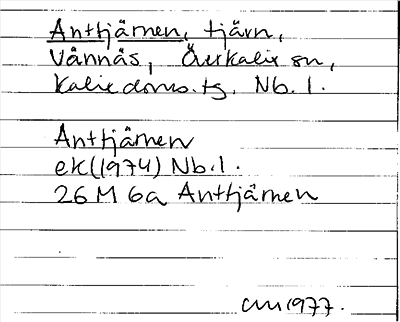 Anttjärnen, tjärn,
Vännäs, Överkalix sn,
Kalix doms.tg. Nb. l.
Anttjärnen
ek (1974) Nb.l.
26 M 6a Anttjärnen
1977.